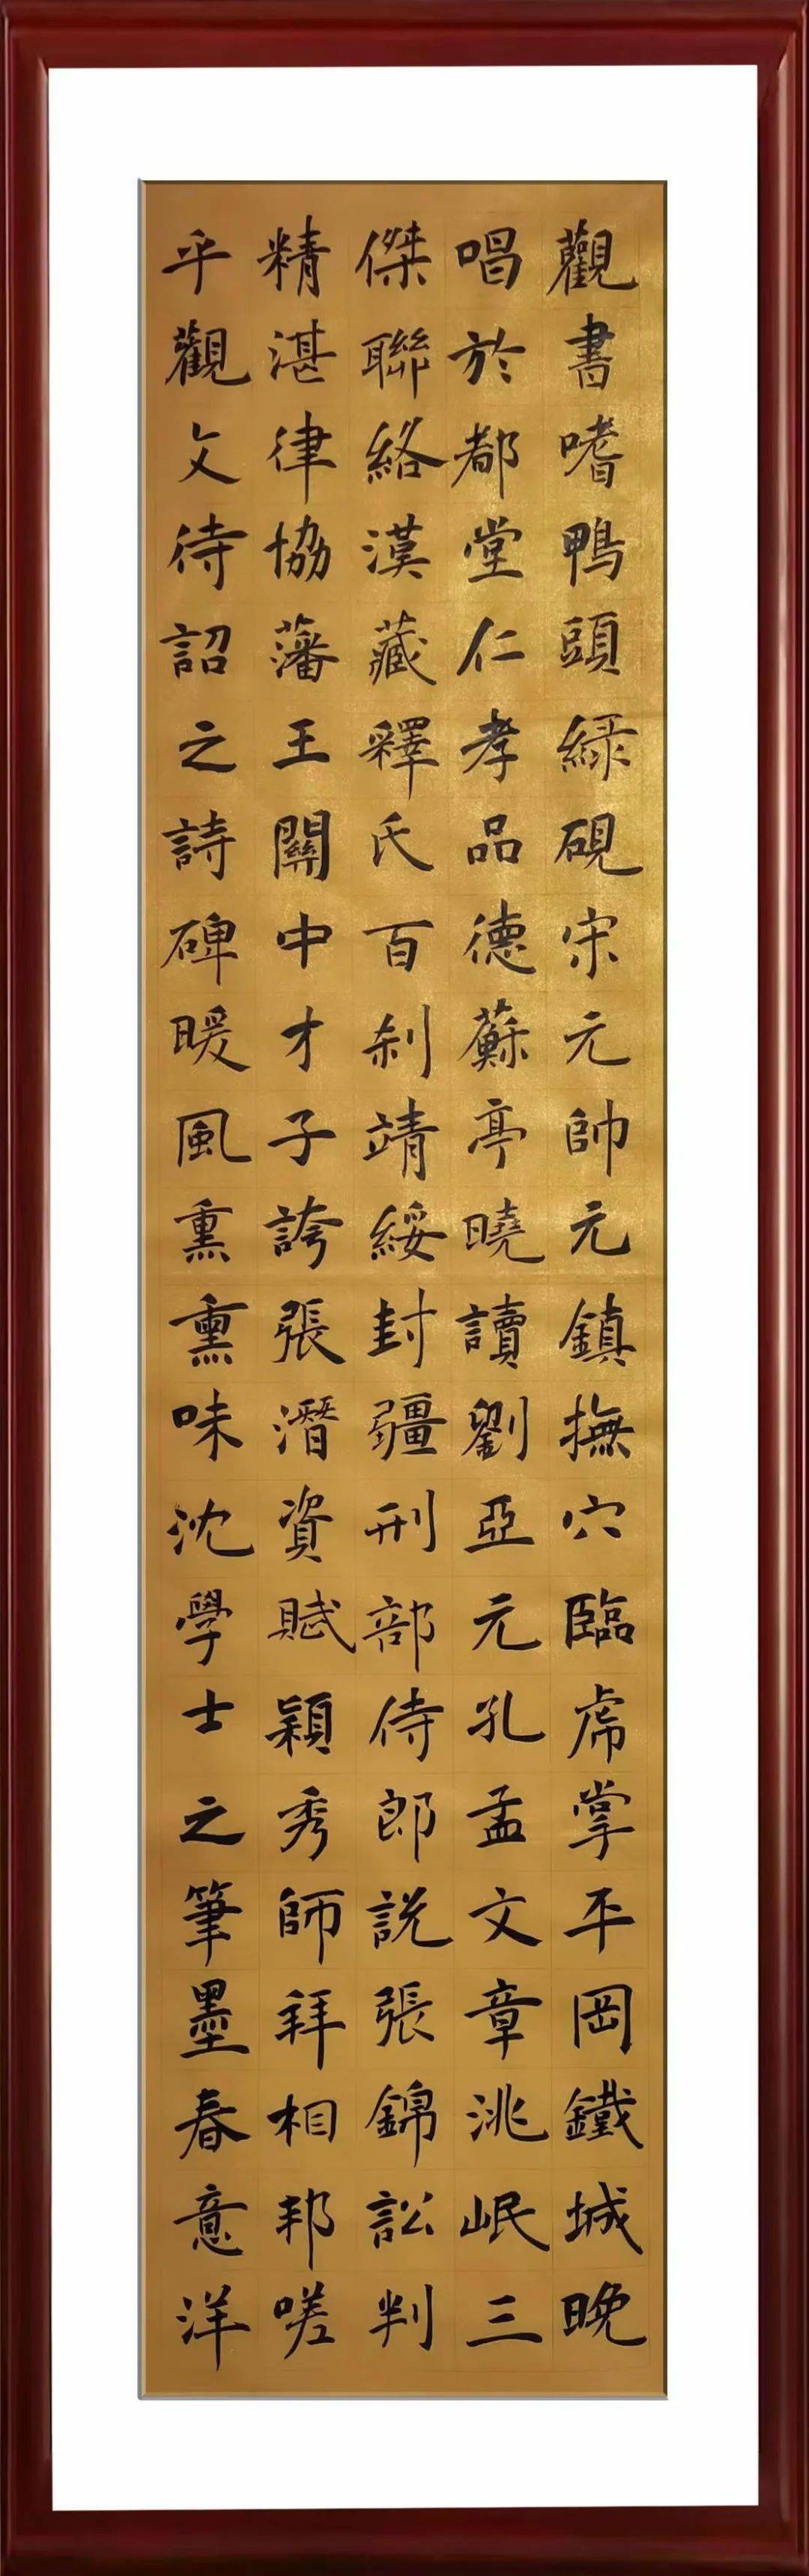 觀書嗜鴨頭緑硯宋元帥元鎮撫穴臨虎掌平岡鐵城晚
唱於都堂仁孝品德蘇亭曉讀劉亞元孔孟文章洮岷三
傑聯絡漢藏釋氏百刹靖綏封疆刑部侍郎説張錦訟判
精湛律協藩王關中才子誇張潛資賦穎秀師拜相邦嗟
乎觀文待詔之詩碑暖風熏熏味沈學士之筆墨春意洋